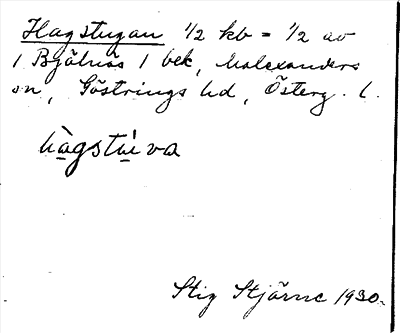 Hagstugan 1/2 kb = 1/2 av
1 Bjälnäs 1 bek, Malexanders
sn, Göstrings hd, Österg. l.
hàgstu̇va
Stig Stjärne 1930.